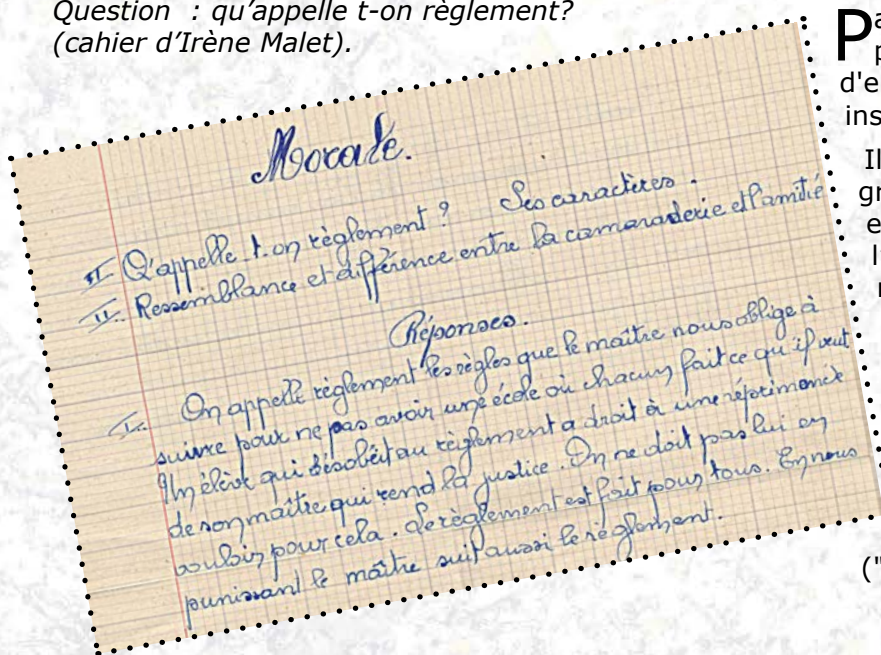 Question : qu'appelle t-on règlement?
(cahier d'Irène Malet).
Morale.
I- Q'appelle t.on règlement ? Ses caractères.
II- Ressemblance et différence entre la camaraderie et l'amitié
Réponses.
I- On appelle règlement les règles que le maître nous oblige à
suivre pour ne pas avoir une école où chacun fait ce qu'il veut
Un élève qui désobéit au règlement a droit à une réprimande
de son maître qui rend la justice. On ne doit pas lui en
vouloir pour cela. Le règlement est fait pour tous. En nous
punissant le maître suit aussi le règlement.
Pa
p
d'e
ins
Il
gr
e
l
("